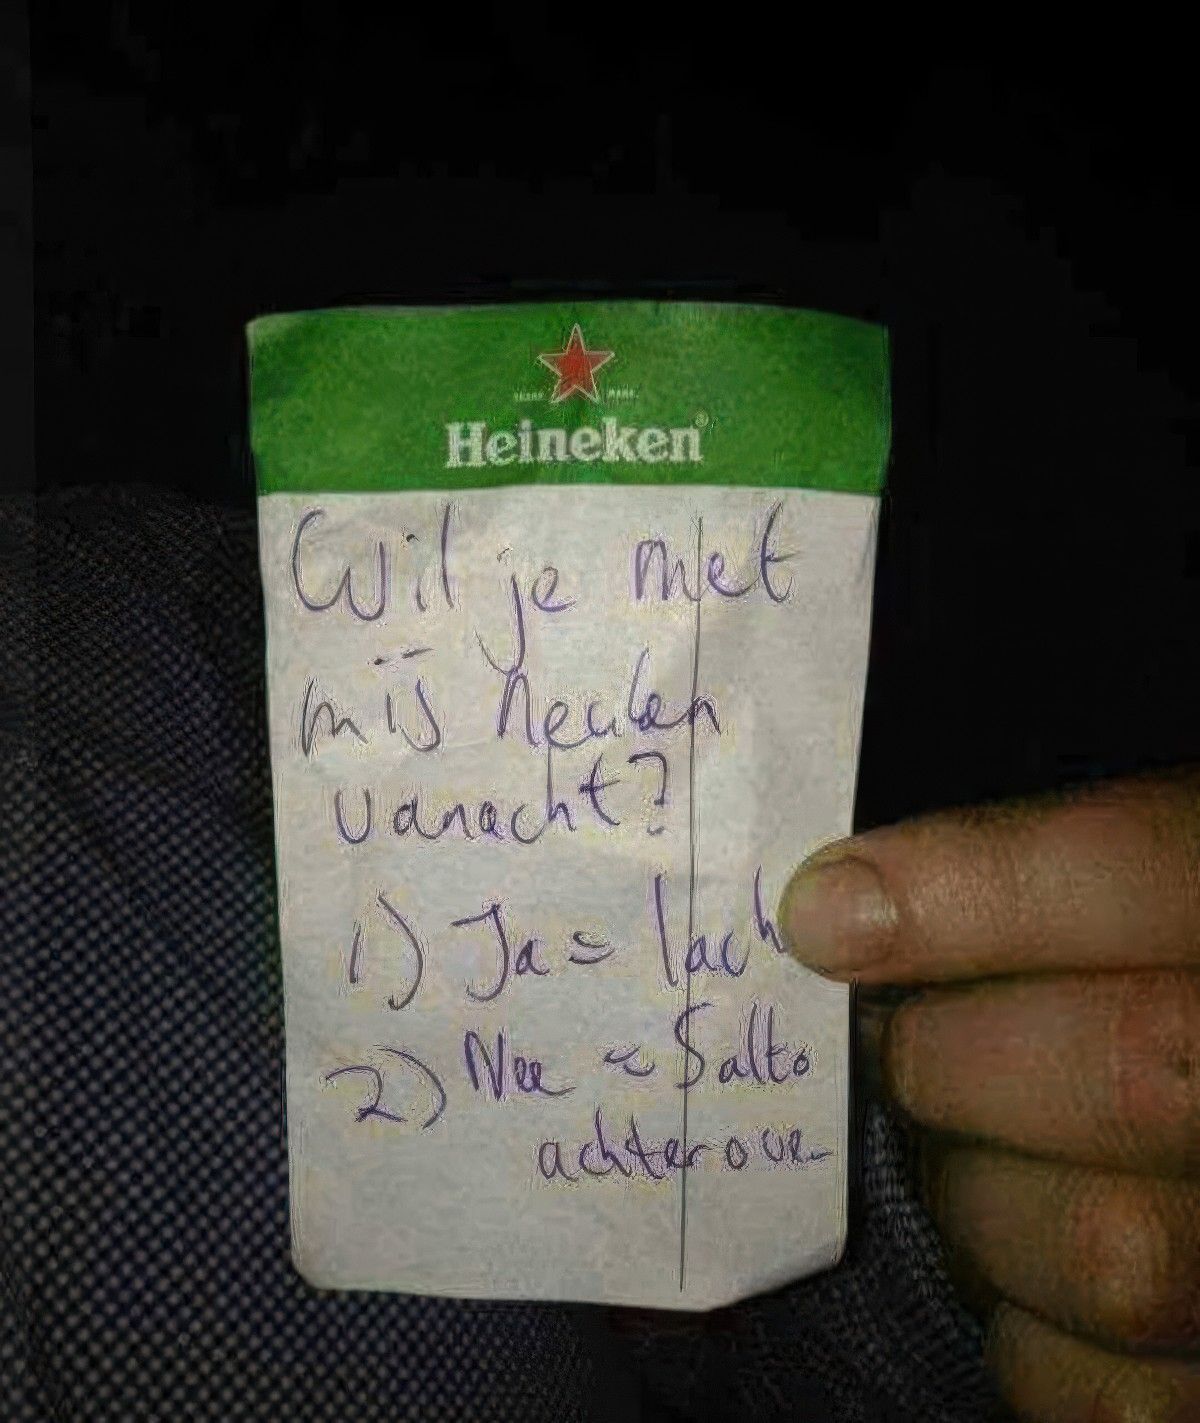 TRADE MARK
Heineken®
Wil je met
mij neuken
vanacht?
1) Ja = lach
2) Nee = Salto
achterover